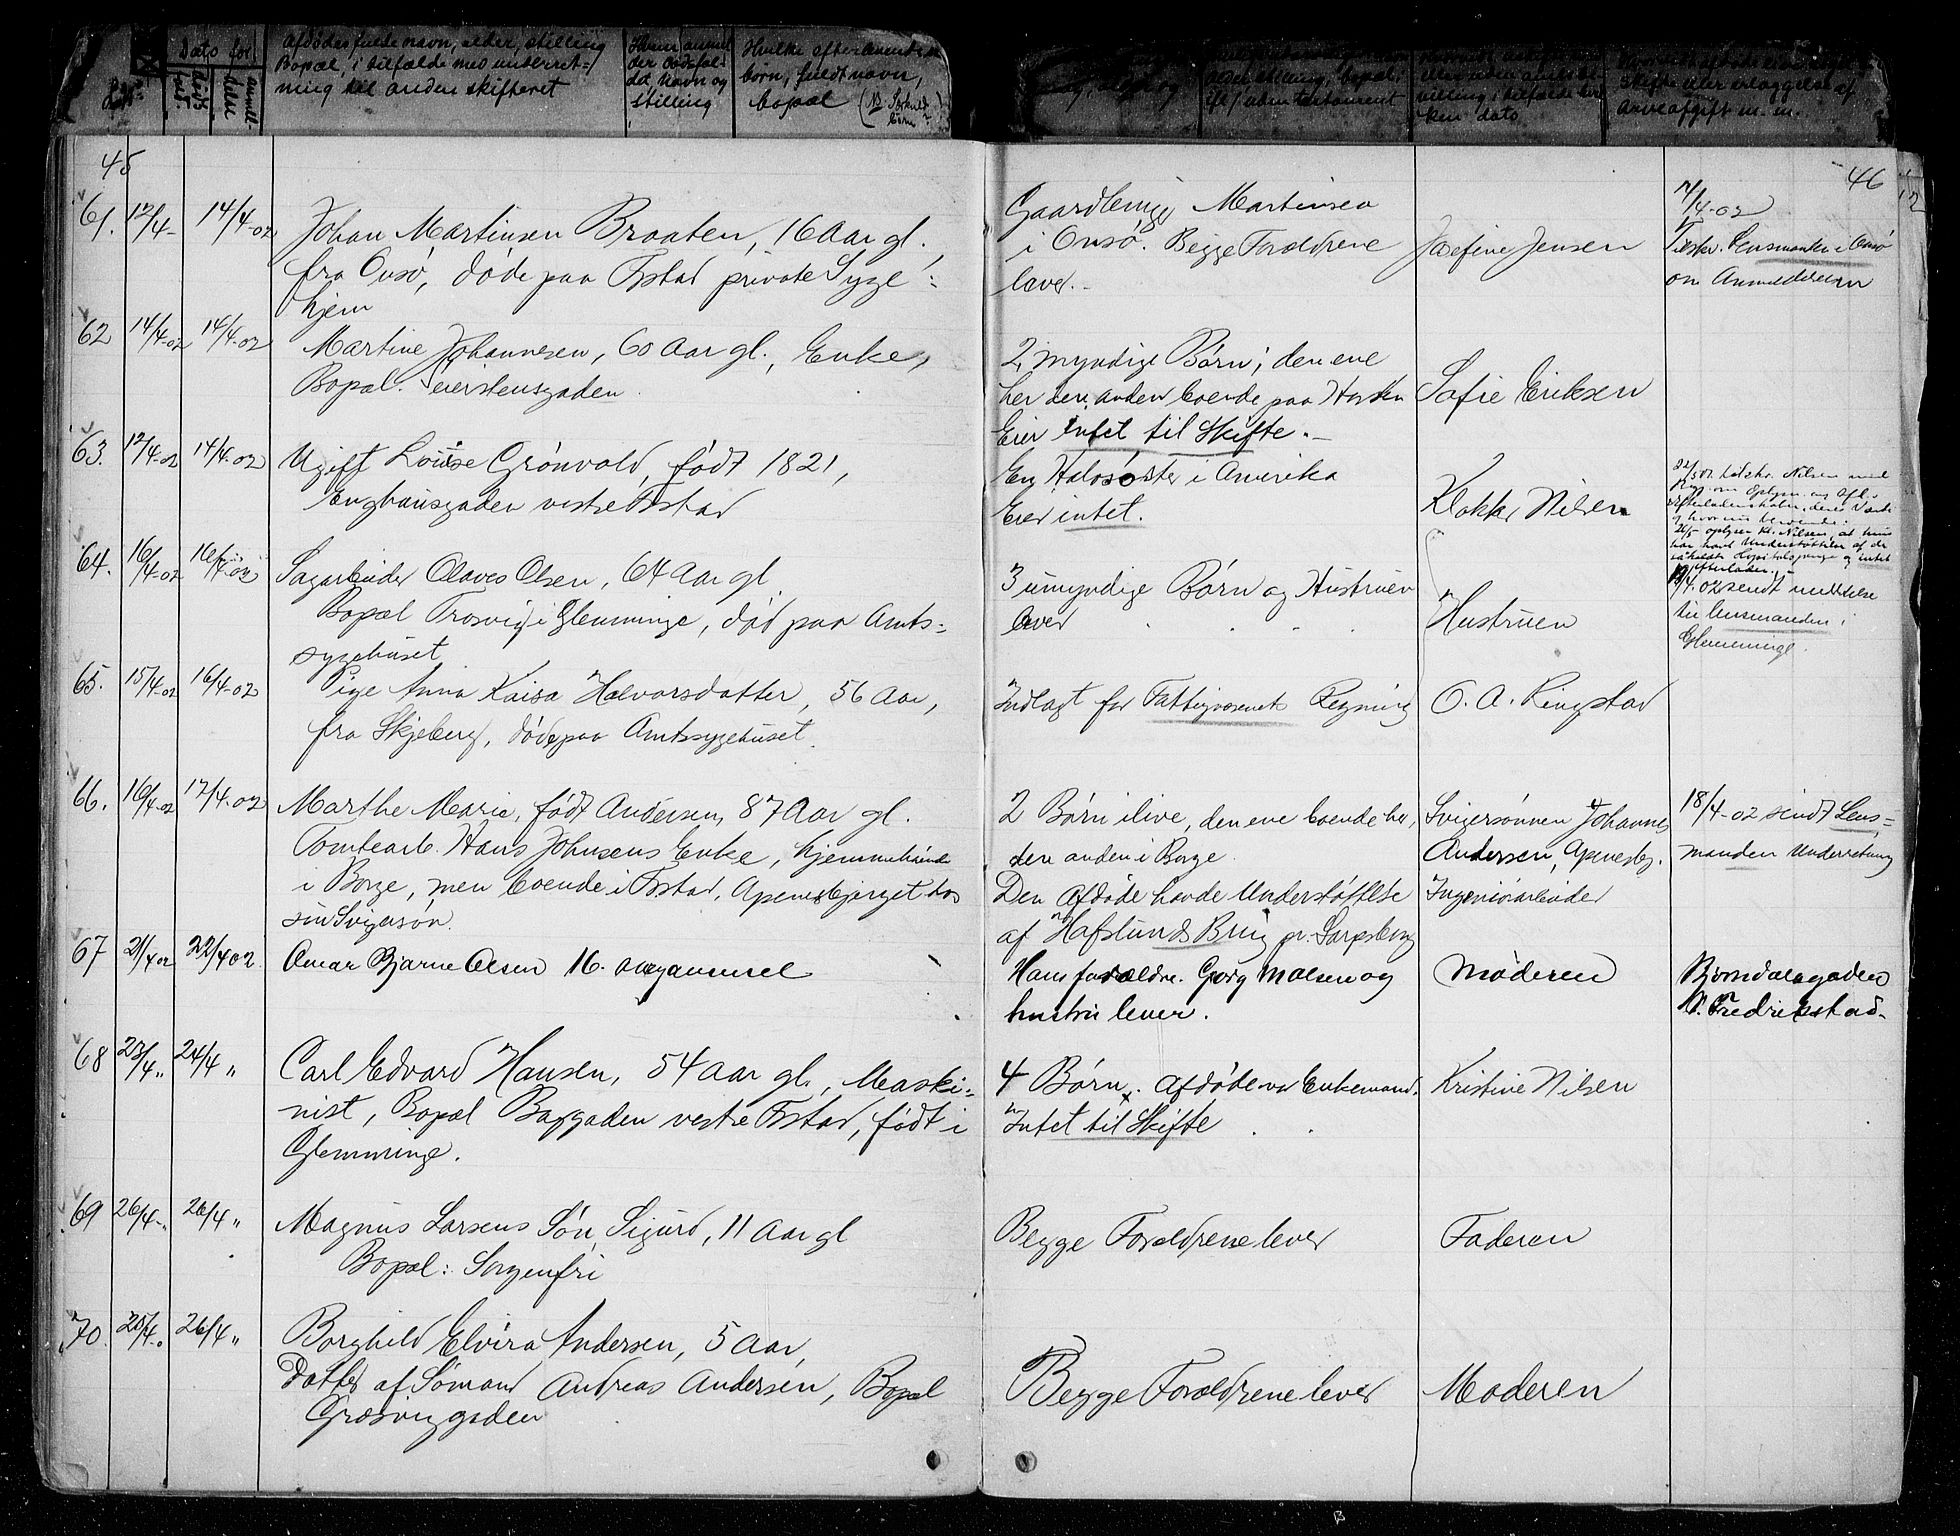 Dato for
død
anmeldelse
Afdødes fulde navn, alder, stilling
Bopæl, i tilfælde med underret-
ning til anden skifteret
Hvem anmel
der dødsfal-
det, navn og
stilling
Hvilke efterlevende
børn, fuldt navn,
bopæl
stilling, bopæl,
testament
villing, i tilfælde
ken dato
Skifte eller erlæggelse af
Arveafgift m. m.
45
61. 12/4- 14/4-02 Johan Martinsen Braaten, 16 Aar gl.
fra Onsø, døde paa Fstad private Syge-
hjem
62 14/4-02 14/4-02 Martine Johannesen, 60 Aar gl., Enke,
Bopæl. Seierstensgaden
63. 12/4-02 14/4-02 Ugift Louise Grønvold, født 1821,
Enghausgaden vestre Fstad
64. 16/4-02 16/4-02 Sagarbeider Olaves Olsen, 64 Aar gl
Bopæl Trosvig i Glemminge, død paa Amts-
sygehuset
65. 15/4-02 16/4-02 Pige Anna Kaisa Halvorsdatter, 56 Aar,
fra Skjeberg, døde paa Amtssygehuset.
66. 16/4-02 17/4-02 Marthe Marie, født Andersen, 87 Aar gl.
Tomtearb. Hans Johnsens Enke, hjemmehørende
i Borge, men boende i Fstad, Apenesbjerget hos
sin Svigersøn.
67 21/4 02 22/4 02. Omar Bjarne Olsen 16. aar gammel
68 23/4 " 24/4 " Carl Edvard Hansen, 54 Aar gl., Maski-
nist, Bopæl Baggaden vestre Fstad, født i
Glemminge.
69 26/4 " 26/4 " Magnus Larsens Søn Sigurd, 11 Aar gl
Bopæl: Sorgenfri
70. 25/4 " 26/4 " Borghild Elvira Andersen, 5 Aar,
Datter af Sømand Andreas Andersen, Bopæl
Grosviggaden
46
Martinsen
i Onsø. Begge Forældrene
lever.
Josefine Jensen
/4-02
Tilskr. Lensmanden i Onsø
om Anmeldelsen
2 myndige Børn; den ene
her den anden boende paa
Eier intet til Skifte.
Sofie Eriksen
En Halvsøster i Amerika
Eier intet.
Klokker Nilsen
Nilsen med
26/5 oplyser Kl. Nilsen, at hun
har havt Understøttelse af de
og intet
efterlader.
3 umyndige Børn og Hustruen
lever
Hustruen
/4.02 sendt meddelelse
til Lensmanden i
Glemminge.
Indlagt for Fattigvæsenets Regning
O. A. Ringstad
2 Børn i live, den ene boende her,
den anden i Borge.
Den Afdøde havde Understøttelse
af Hafslunds Brug pr. Sarpsborg
Svigersønnen Johannes
Andersen, Apenesbg.
Ingeniørarbeider
18/4-02 sendt Lens-
manden Underretning
Hans forældre. Georg M Olsen og
hustru lever.
Moderen
Bjørndalsgaden
V. Fredrikstad.
4 Børn. Afdøde var Enkemand.
Intet til Skifte
Kristine Nilsen
Begge Forældrene lever
Faderen
Begge Forældrene lever
Moderen